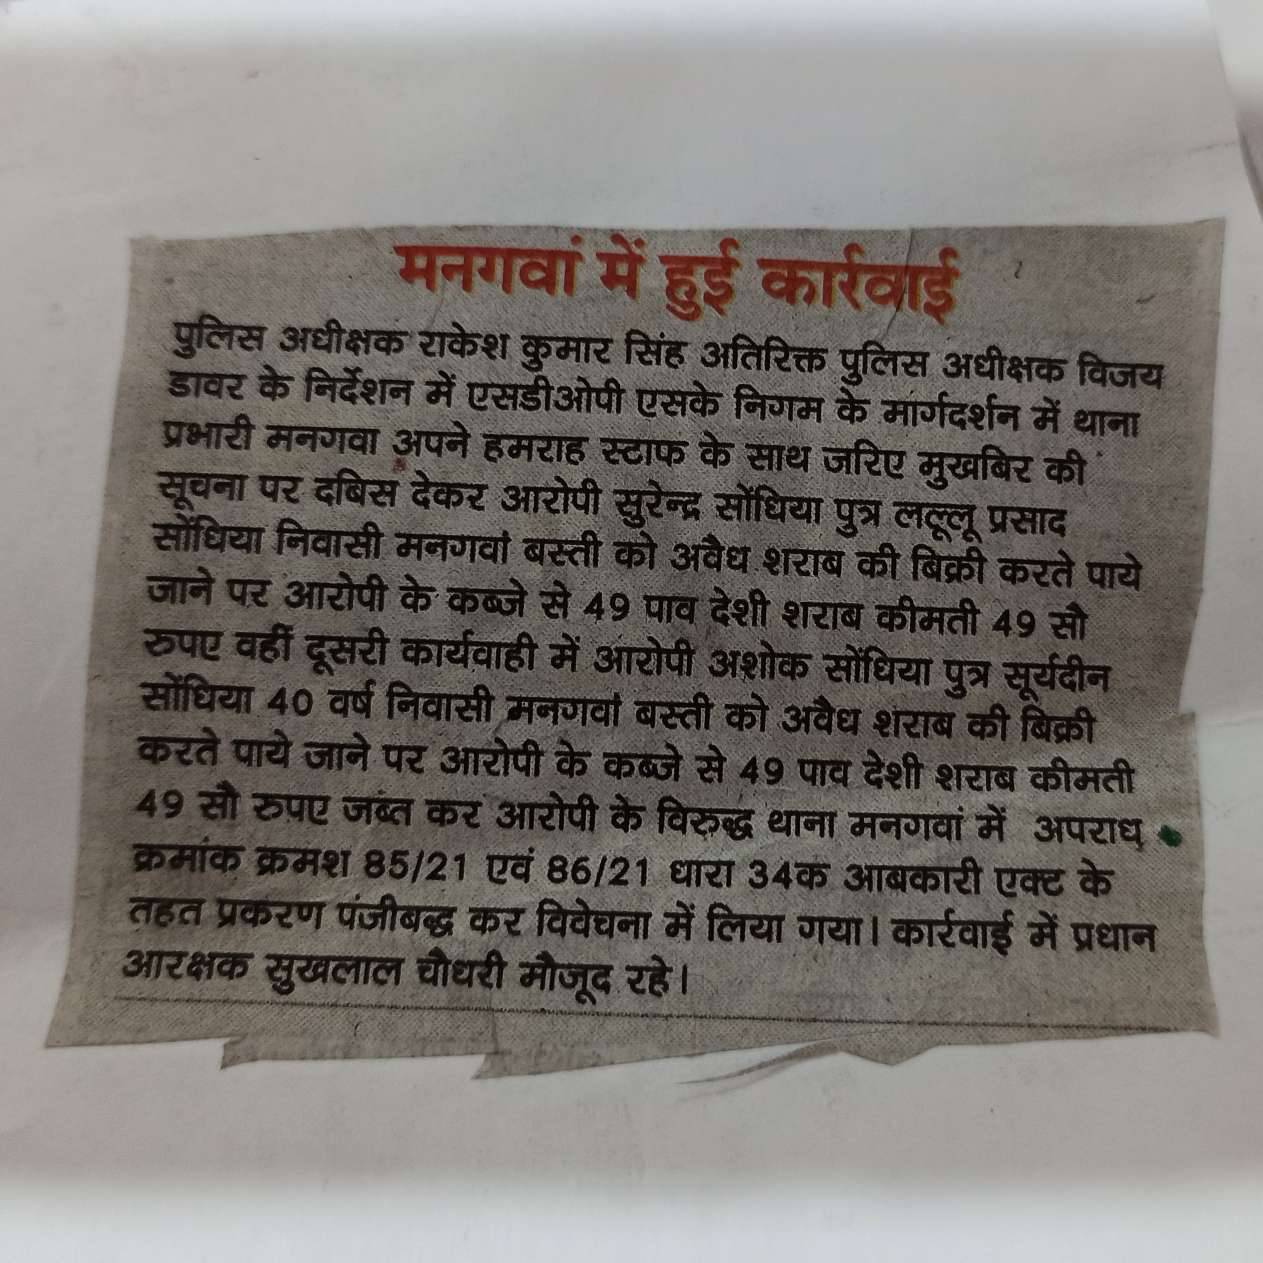 मनगवां में हुई कार्रवाई
पुलिस अधीक्षक राकेश कुमार सिंह अतिरिक्त पुलिस अधीक्षक विजय
डावर के निर्देशन में एसडीओपी एसके निगम के मार्गदर्शन में थाना
प्रभारी मनगवा अपने हमराह स्टाफ के साथ जरिए मुखबिर की
सूचना पर दबिस देकर आरोपी सुरेन्द्र सोंधिया पुत्र लल्लू प्रसाद
सोंधिया निवासी मनगवां बस्ती को अवैध शराब की बिक्री करते पाये
जाने पर आरोपी के कब्जे से 49 पाव देशी शराब कीमती 49 सौ
रुपए वहीं दूसरी कार्यवाही में आरोपी अशोक सोंधिया पुत्र सूर्यदीन
सोंधिया 40 वर्ष निवासी मनगवां बस्ती को अवैध शराब की बिक्री
करते पाये जाने पर आरोपी के कब्जे से 49 पाव देशी शराब कीमती
49 सौ रुपए जब्त कर आरोपी के विरुद्ध थाना मनगवां में अपराध
क्रमांक क्रमश 85/21 एवं 86/21 धारा 34क आबकारी एक्ट के
तहत प्रकरण पंजीबद्ध कर विवेचना में लिया गया। कार्रवाई में प्रधान
आरक्षक सुखलाल चौधरी मौजूद रहे।